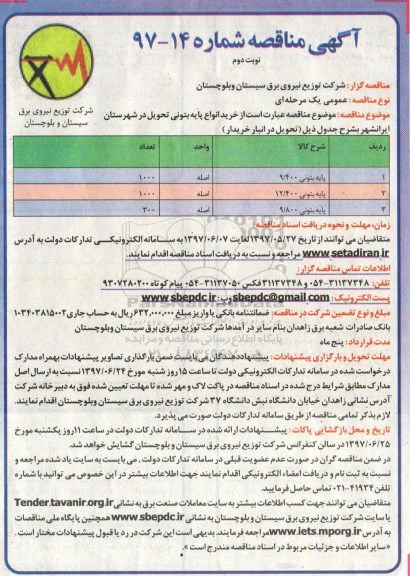 آگهی مناقصه شماره ۱۴-۹۷
نوبت دوم
شرکت توزیع نیروی برق
سیستان و بلوچستان
مناقصه گزار: شرکت توزیع نیروی برق سیستان وبلوچستان
نوع مناقصه: عمومی یک مرحله ای
موضوع مناقصه: موضوع مناقصه عبارت است از خرید انواع پایه بتونی تحویل در شهرستان
ایرانشهر بشرح جدول ذیل (تحویل در انبار خریدار)
ردیف شرح کالا واحد تعداد
۱ پایه بتونی ۹/۴۰۰ اصله ۱۰۰۰
۲ پایه بتونی ۱۲/۴۰۰ اصله ۱۰۰۰
۳ پایه بتونی ۹/۸۰۰ اصله ۳۰۰
زمان، مهلت و نحوه دریافت اسناد مناقصه:
متقاضیان می توانند از تاریخ ۱۳۹۷/۰۵/۲۷ لغایت ۱۳۹۷/۰۶/۰۷ به سامانه الکترونیکی تدارکات دولت به آدرس
www.setadiran.ir مراجعه و نسبت به دریافت اسناد مناقصه اقدام نمایند.
اطلاعات تماس مناقصه گزار:
تلفن: ۳۱۱۳۷۳۴۸-۰۵۴ و ۳۱۱۳۷۳۴۸ فکس ۳۱۱۳۷۰۵۰-۰۵۴ پیام کوتاه ۹۳۰۷۲۸۰۲۰۰
پست الکترونیک: sbepdc@gmail.com وب: www.sbepdc.ir
مبلغ و نوع تضمین شرکت در مناقصه: ضمانتنامه بانکی یا واریز مبلغ ۶۳۲,۰۰۰,۰۰۰ ریال به حساب جاری ۰۱۰۳۴۰۳۸۱۵۰۰۲
بانک صادرات شعبه برق زاهدان بنام سایر در آمدها شرکت توزیع نیروی برق سیستان وبلوچستان
مدت قرارداد: پنج ماه
مهلت تحویل و بارگزاری پیشنهادات: پیشنهاددهندگان می بایست ضمن بارگذاری تصاویر پیشنهادات بهمراه مدارک
درخواست شده در سامانه تدارکات الکترونیکی دولت تا ساعت ۱۵ روز شنبه مورخ ۱۳۹۷/۰۶/۲۴ نسبت به ارسال اصل
مدارک مطابق شرایط درج شده در اسناد مناقصه در پاکت لاک و مهر شده تا مهلت تعیین شده فوق به دبیرخانه شرکت
آدرس نشانی زاهدان خیابان دانشگاه نبش دانشگاه ۳۷ شرکت توزیع نیروی برق سیستان وبلوچستان اقدام نمایند.
لازم بذکر تمامی مناقصه از طریق سامانه تدارکات دولت صورت می پذیرد.
تاریخ و محل بازگشایی پاکات: پیشنهادات ارائه شده در سامانه تدارکات دولت در ساعت ۱۱ روز یکشنبه مورخ
۱۳۹۷/۰۶/۲۵ در سالن کنفرانس شرکت توزیع نیروی برق سیستان و بلوچستان گشایش خواهد شد.
در ضمن مناقصه گران در صورت عدم عضویت قبلی در سامانه تدارکات دولت، می بایست به سایت یاد شده مراجعه و
نسبت به ثبت نام و دریافت امضاء الکترونیکی اقدام نمایند جهت اطلاعات بیشتر در این خصوص می توانید با شماره
تلفن ۴۱۹۳۴-۰۲۱ تماس حاصل فرمایید.
متقاضیان می توانند جهت کسب اطلاعات بیشتر به سایت معاملات صنعت برق به نشانی Tender.tavanir.org.ir
یا سایت شرکت توزیع نیروی برق سیستان و بلوچستان به نشانی www.sbepdc.ir همچنین پایگاه ملی مناقصات
به آدرس www.iets.mporg.ir مراجعه فرمایند. بدیهی است این شرکت در رد یا قبول پیشنهادات مختار است.
«سایر اطلاعات و جزئیات مربوط در اسناد مناقصه مندرج است».